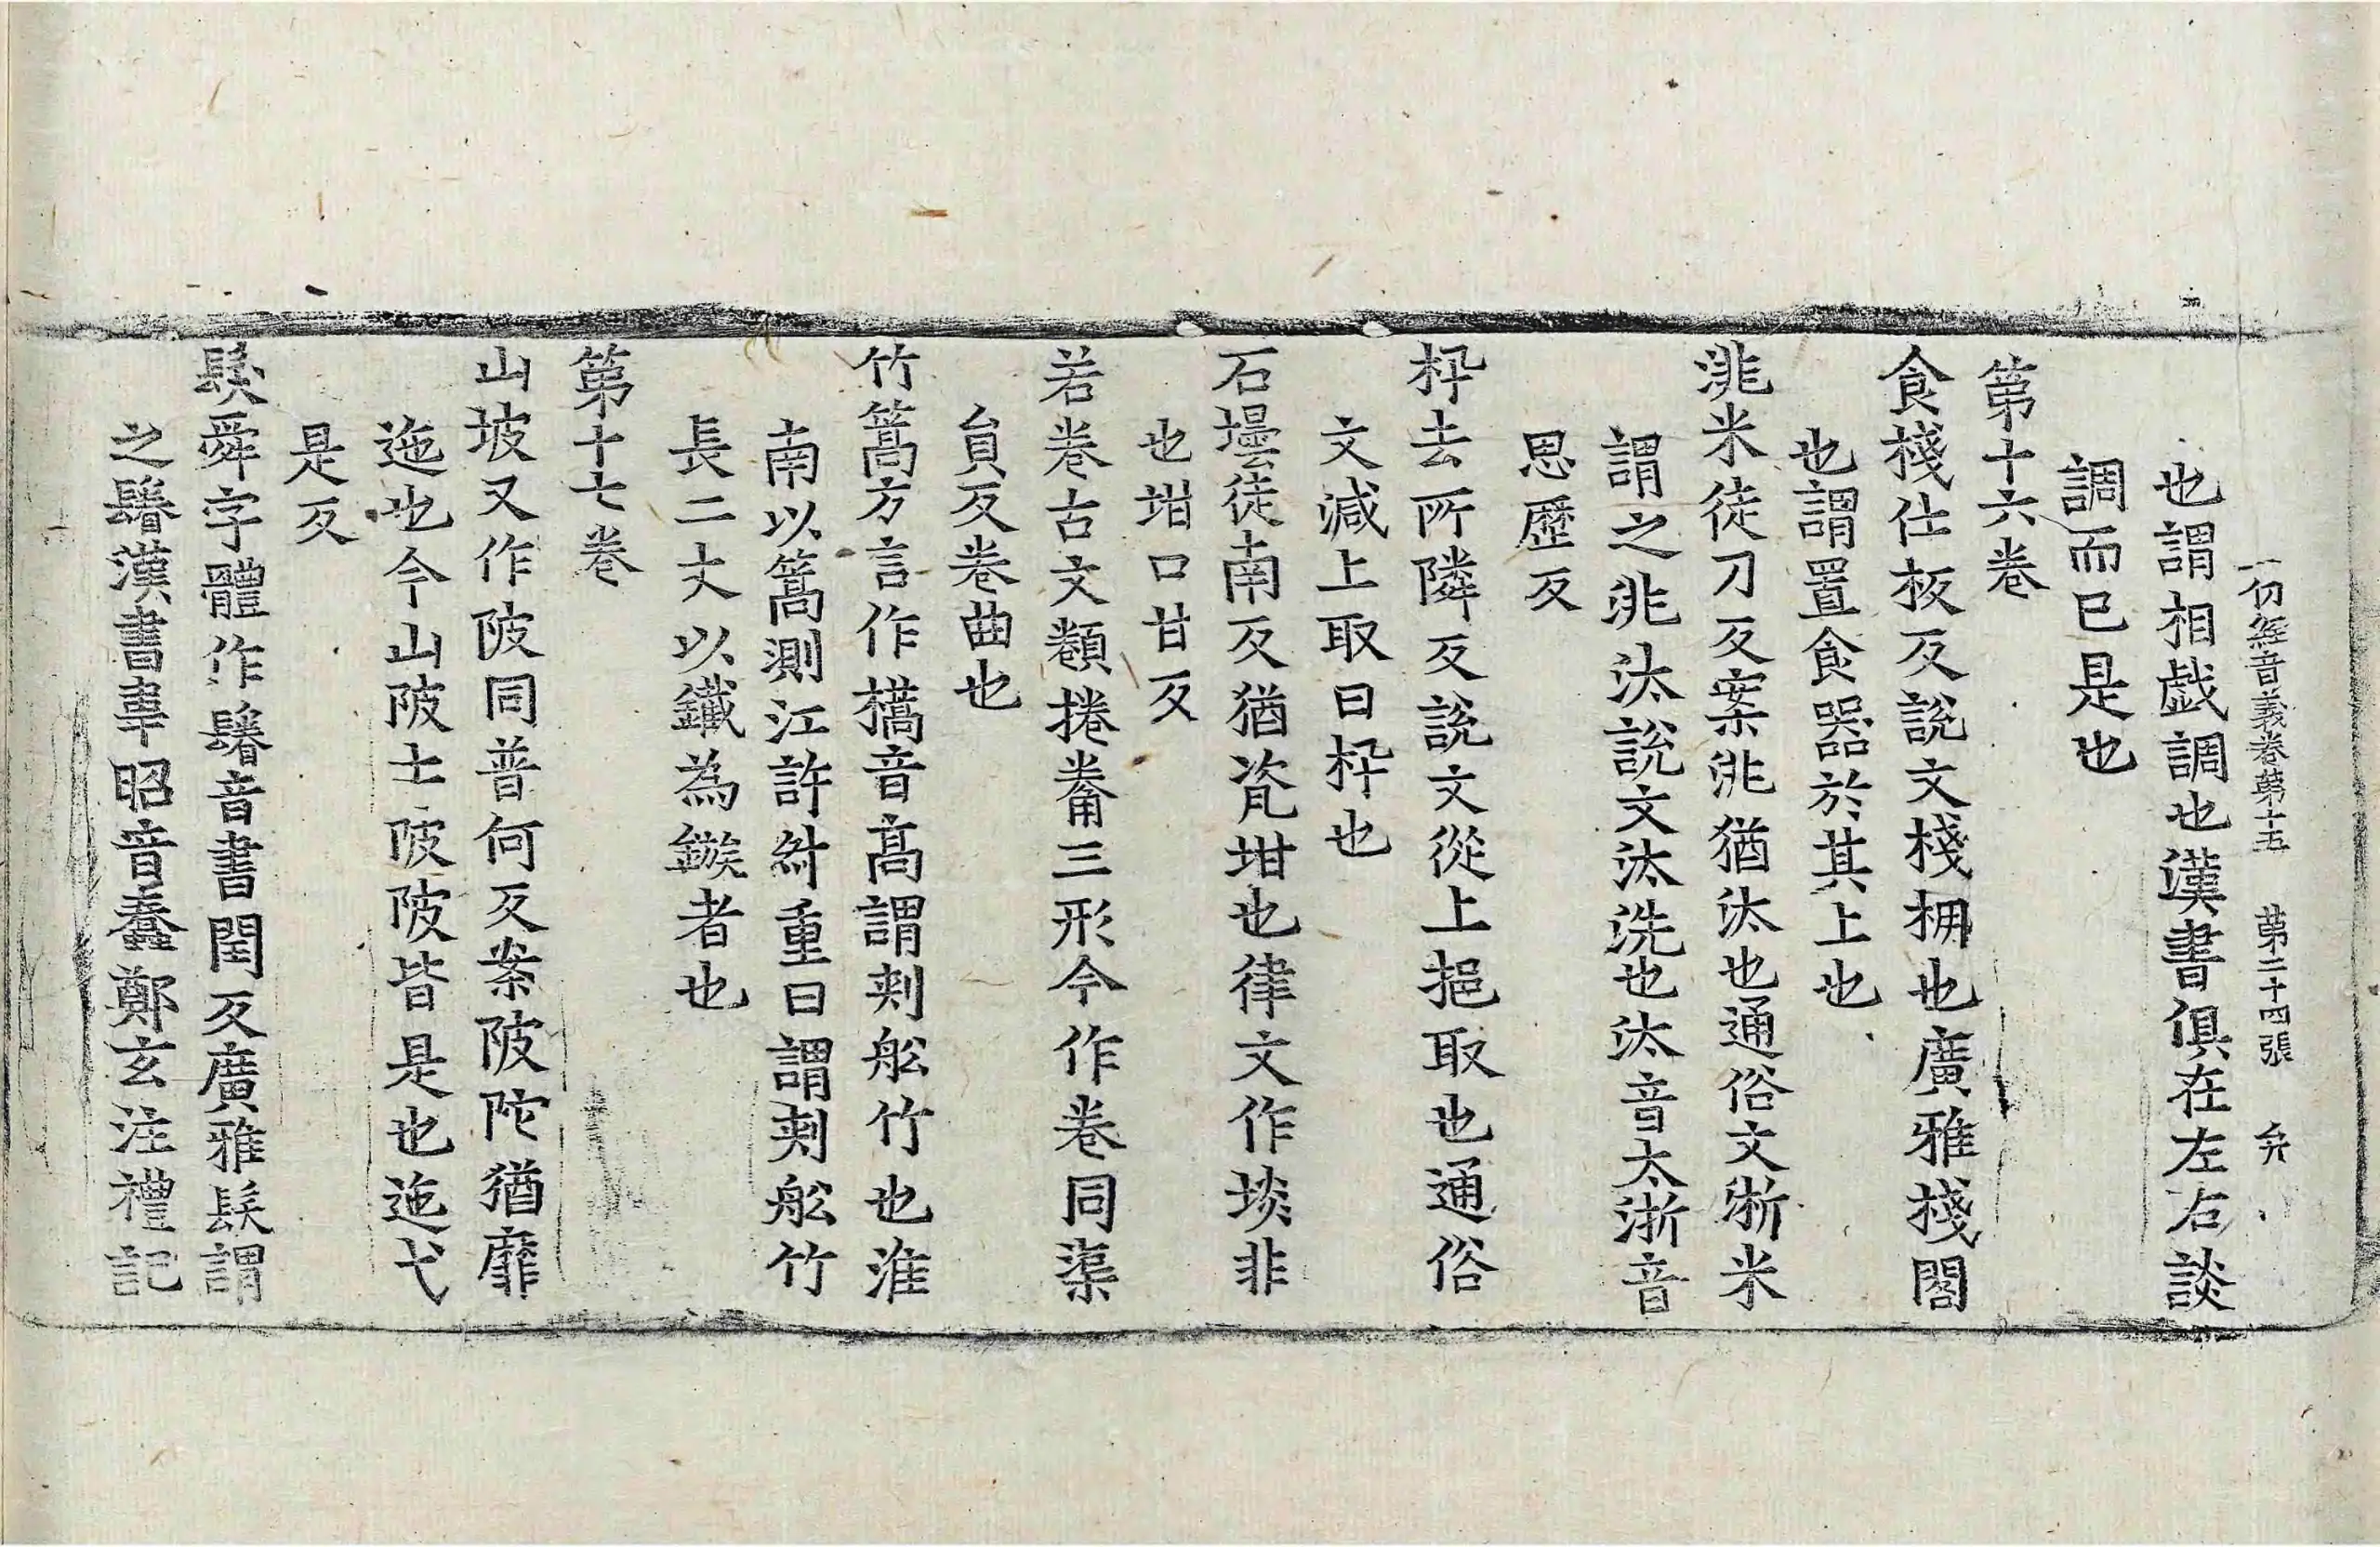 一切經音義卷第十五　第二十四張　弁
也謂相戱調也漢書俱在左右談
調而已是也
第十六卷
食棧仕板反說文棧棚也廣雅棧閣
也謂置食器於其上也
洮米徒刀反案洮猶汰也通俗文淅米
謂之洮汰說文汰洗也汰音太淅音
思歷反
枓去所隣反說文從上挹取也通俗
文減上取曰枓也
石壜徒南反猶瓷坩也律文作埮非
也坩口甘反
若卷古文𩔞捲㢧三形今作卷同渠
負反卷曲也
竹篙方言作㰏音高謂刾舩竹也淮
南以篙測江許叔重曰謂刾舩竹
長二丈以鐵為鏃者也
第十七卷
山坡又作陂同普何反案陂陁猶靡
迆也今山陂土陂陂皆是也迆弋
是反
鬉舜字體作鬊音書閏反廣雅髮謂
之鬊漢書韋昭音蠢鄭玄注禮記